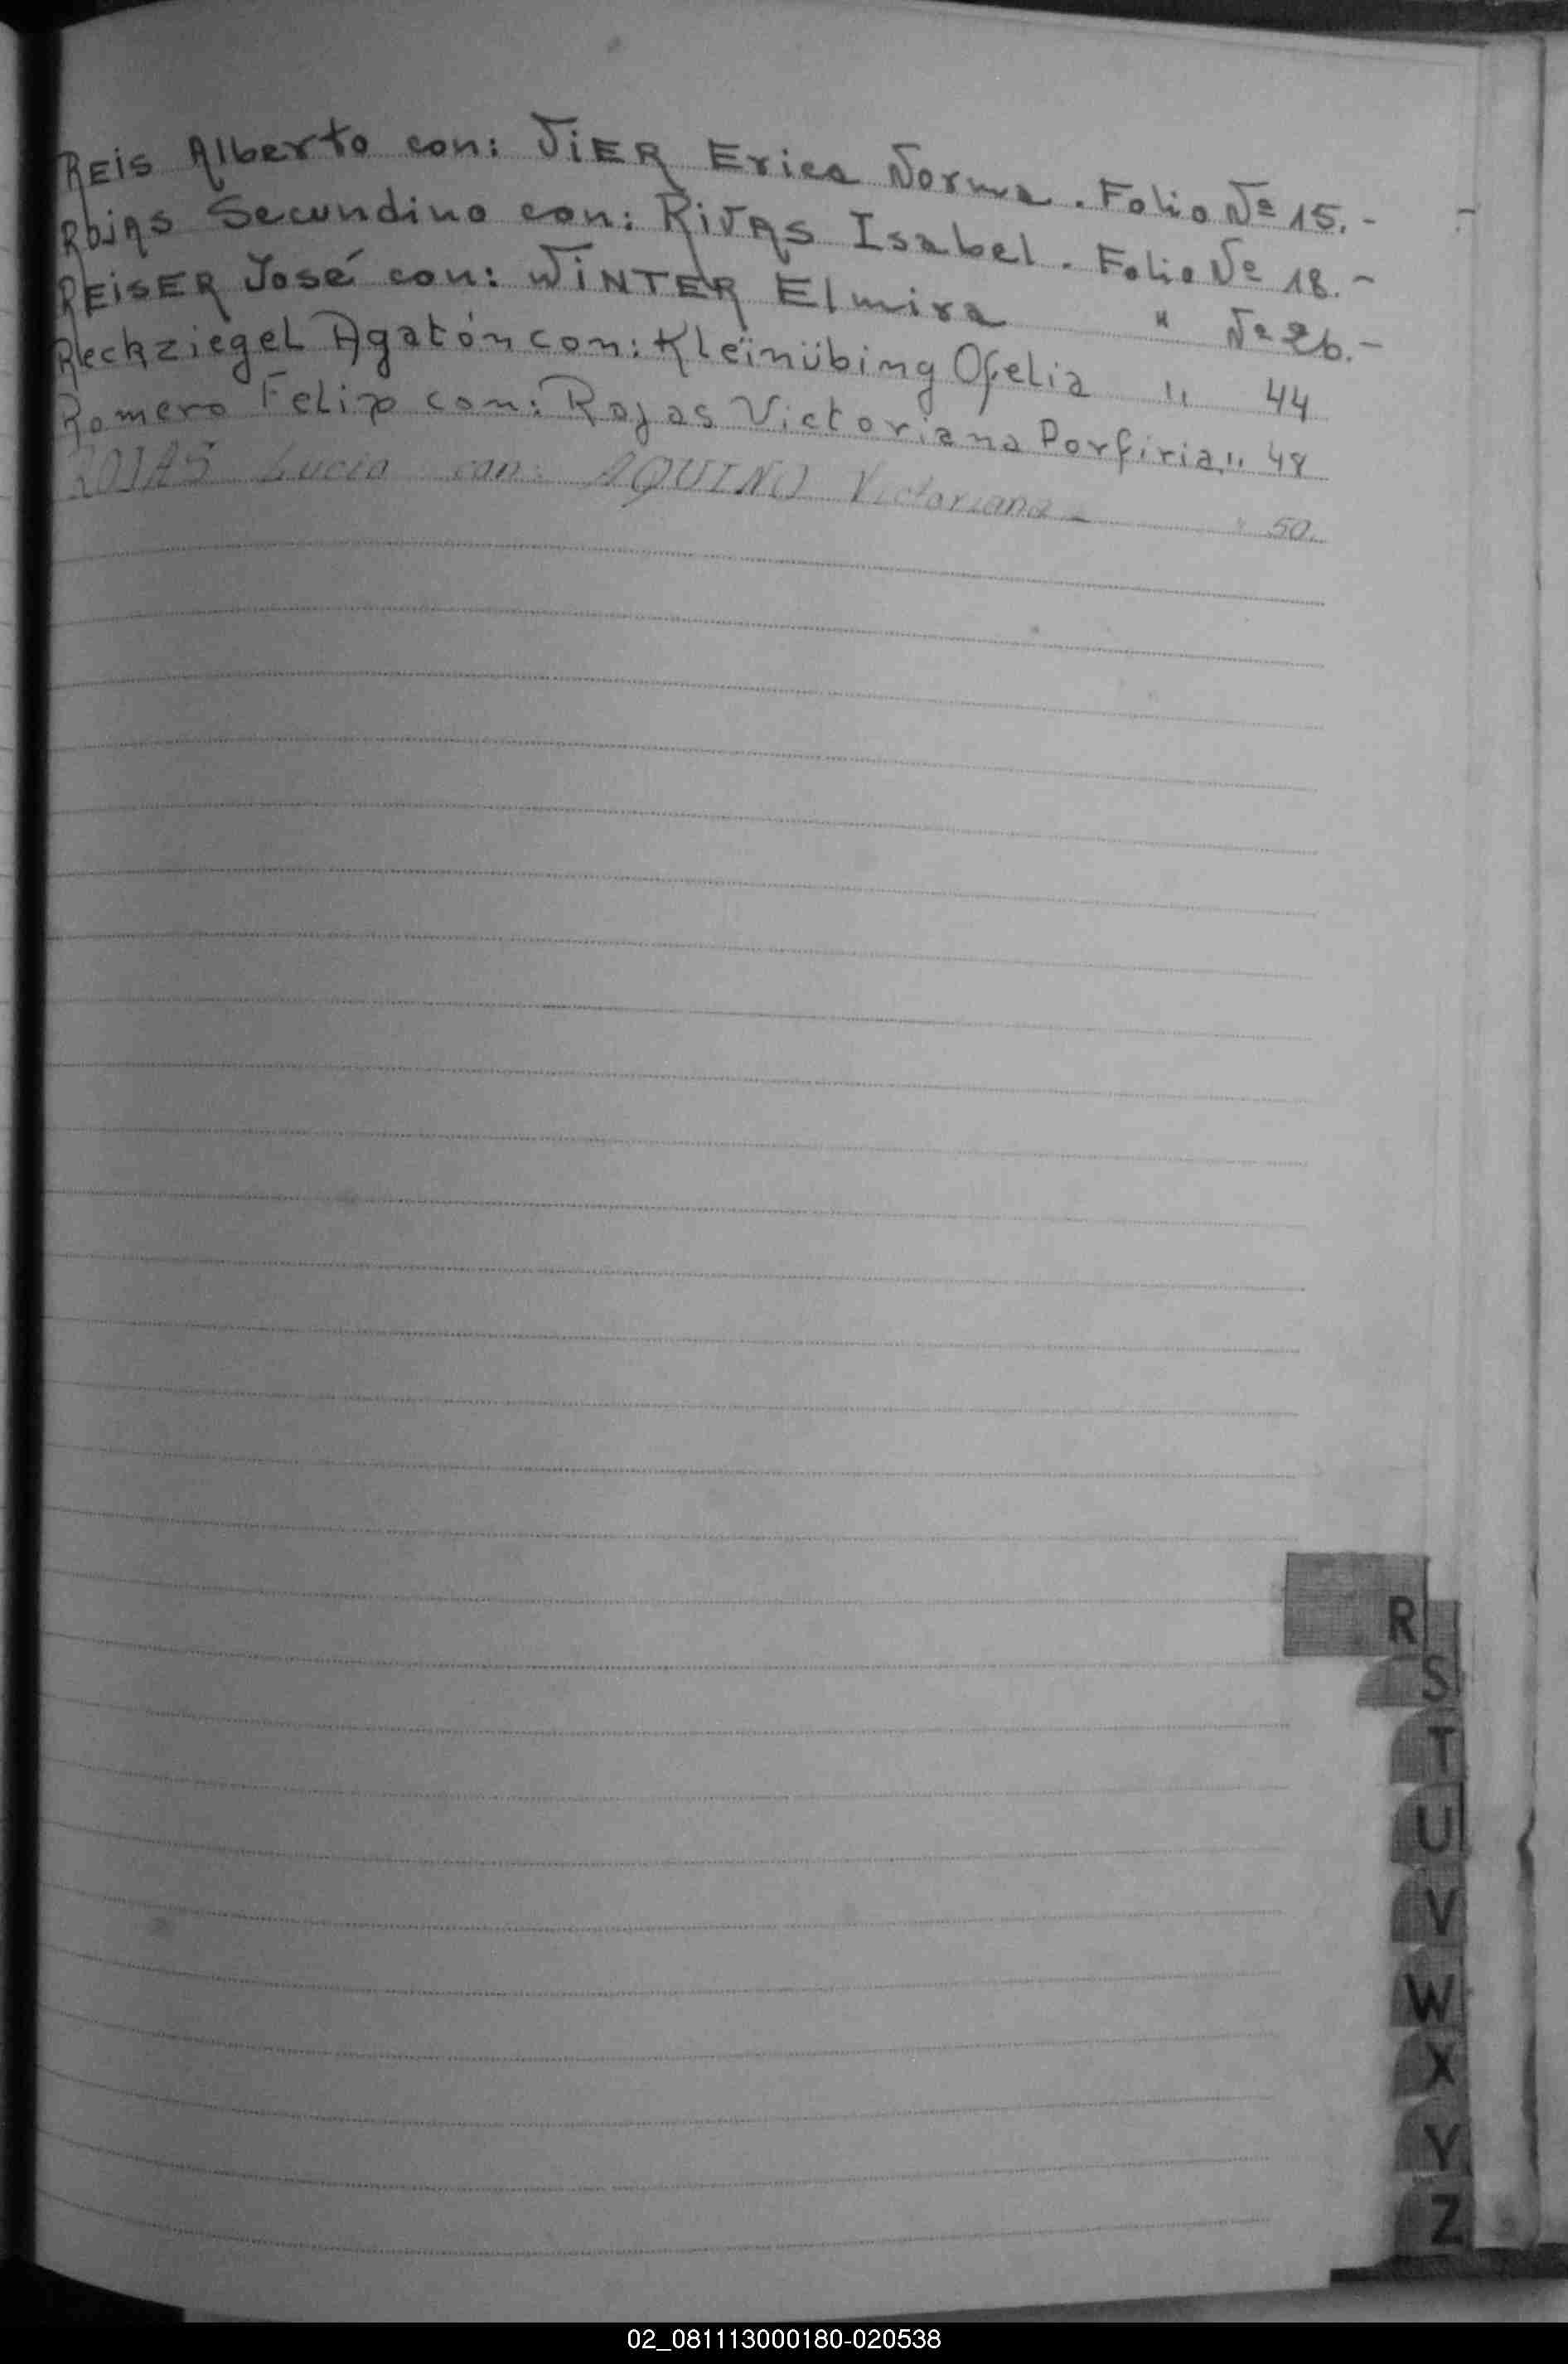 REIS Alberto con: VIER Erica Norma. Folio Nº 15.-
ROJAS Secundino con: RIVAS Isabel. Folio Nº 18.-
REISER José con: WINTER Elmira " Nº 26.-
Reckziegel Agatón con: Kleinübing Ofelia " 44
Romero Felix con: Rojas Victoriana Porfiria " 48
ROJAS Lucio con: AQUINO Victoriana - " 50.
R
S
T
U
V
W
X
Y
Z
02_081113000180-020538